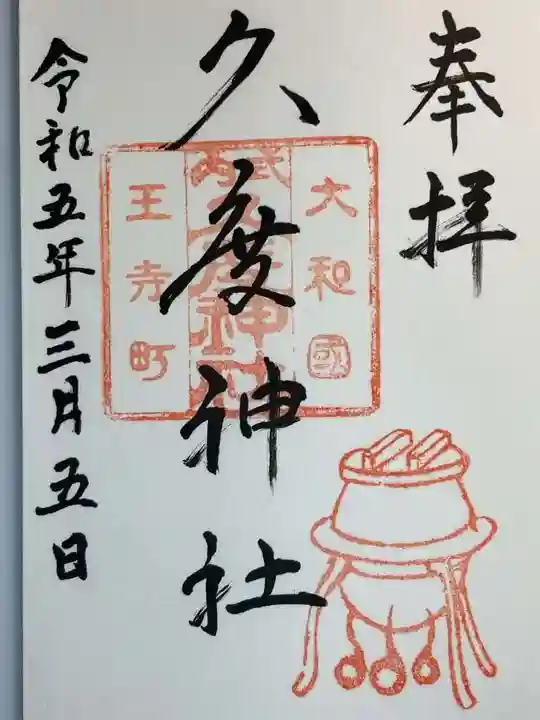 奉拝
久度神社
令和五年三月五日
大和國
久度神社
王寺町